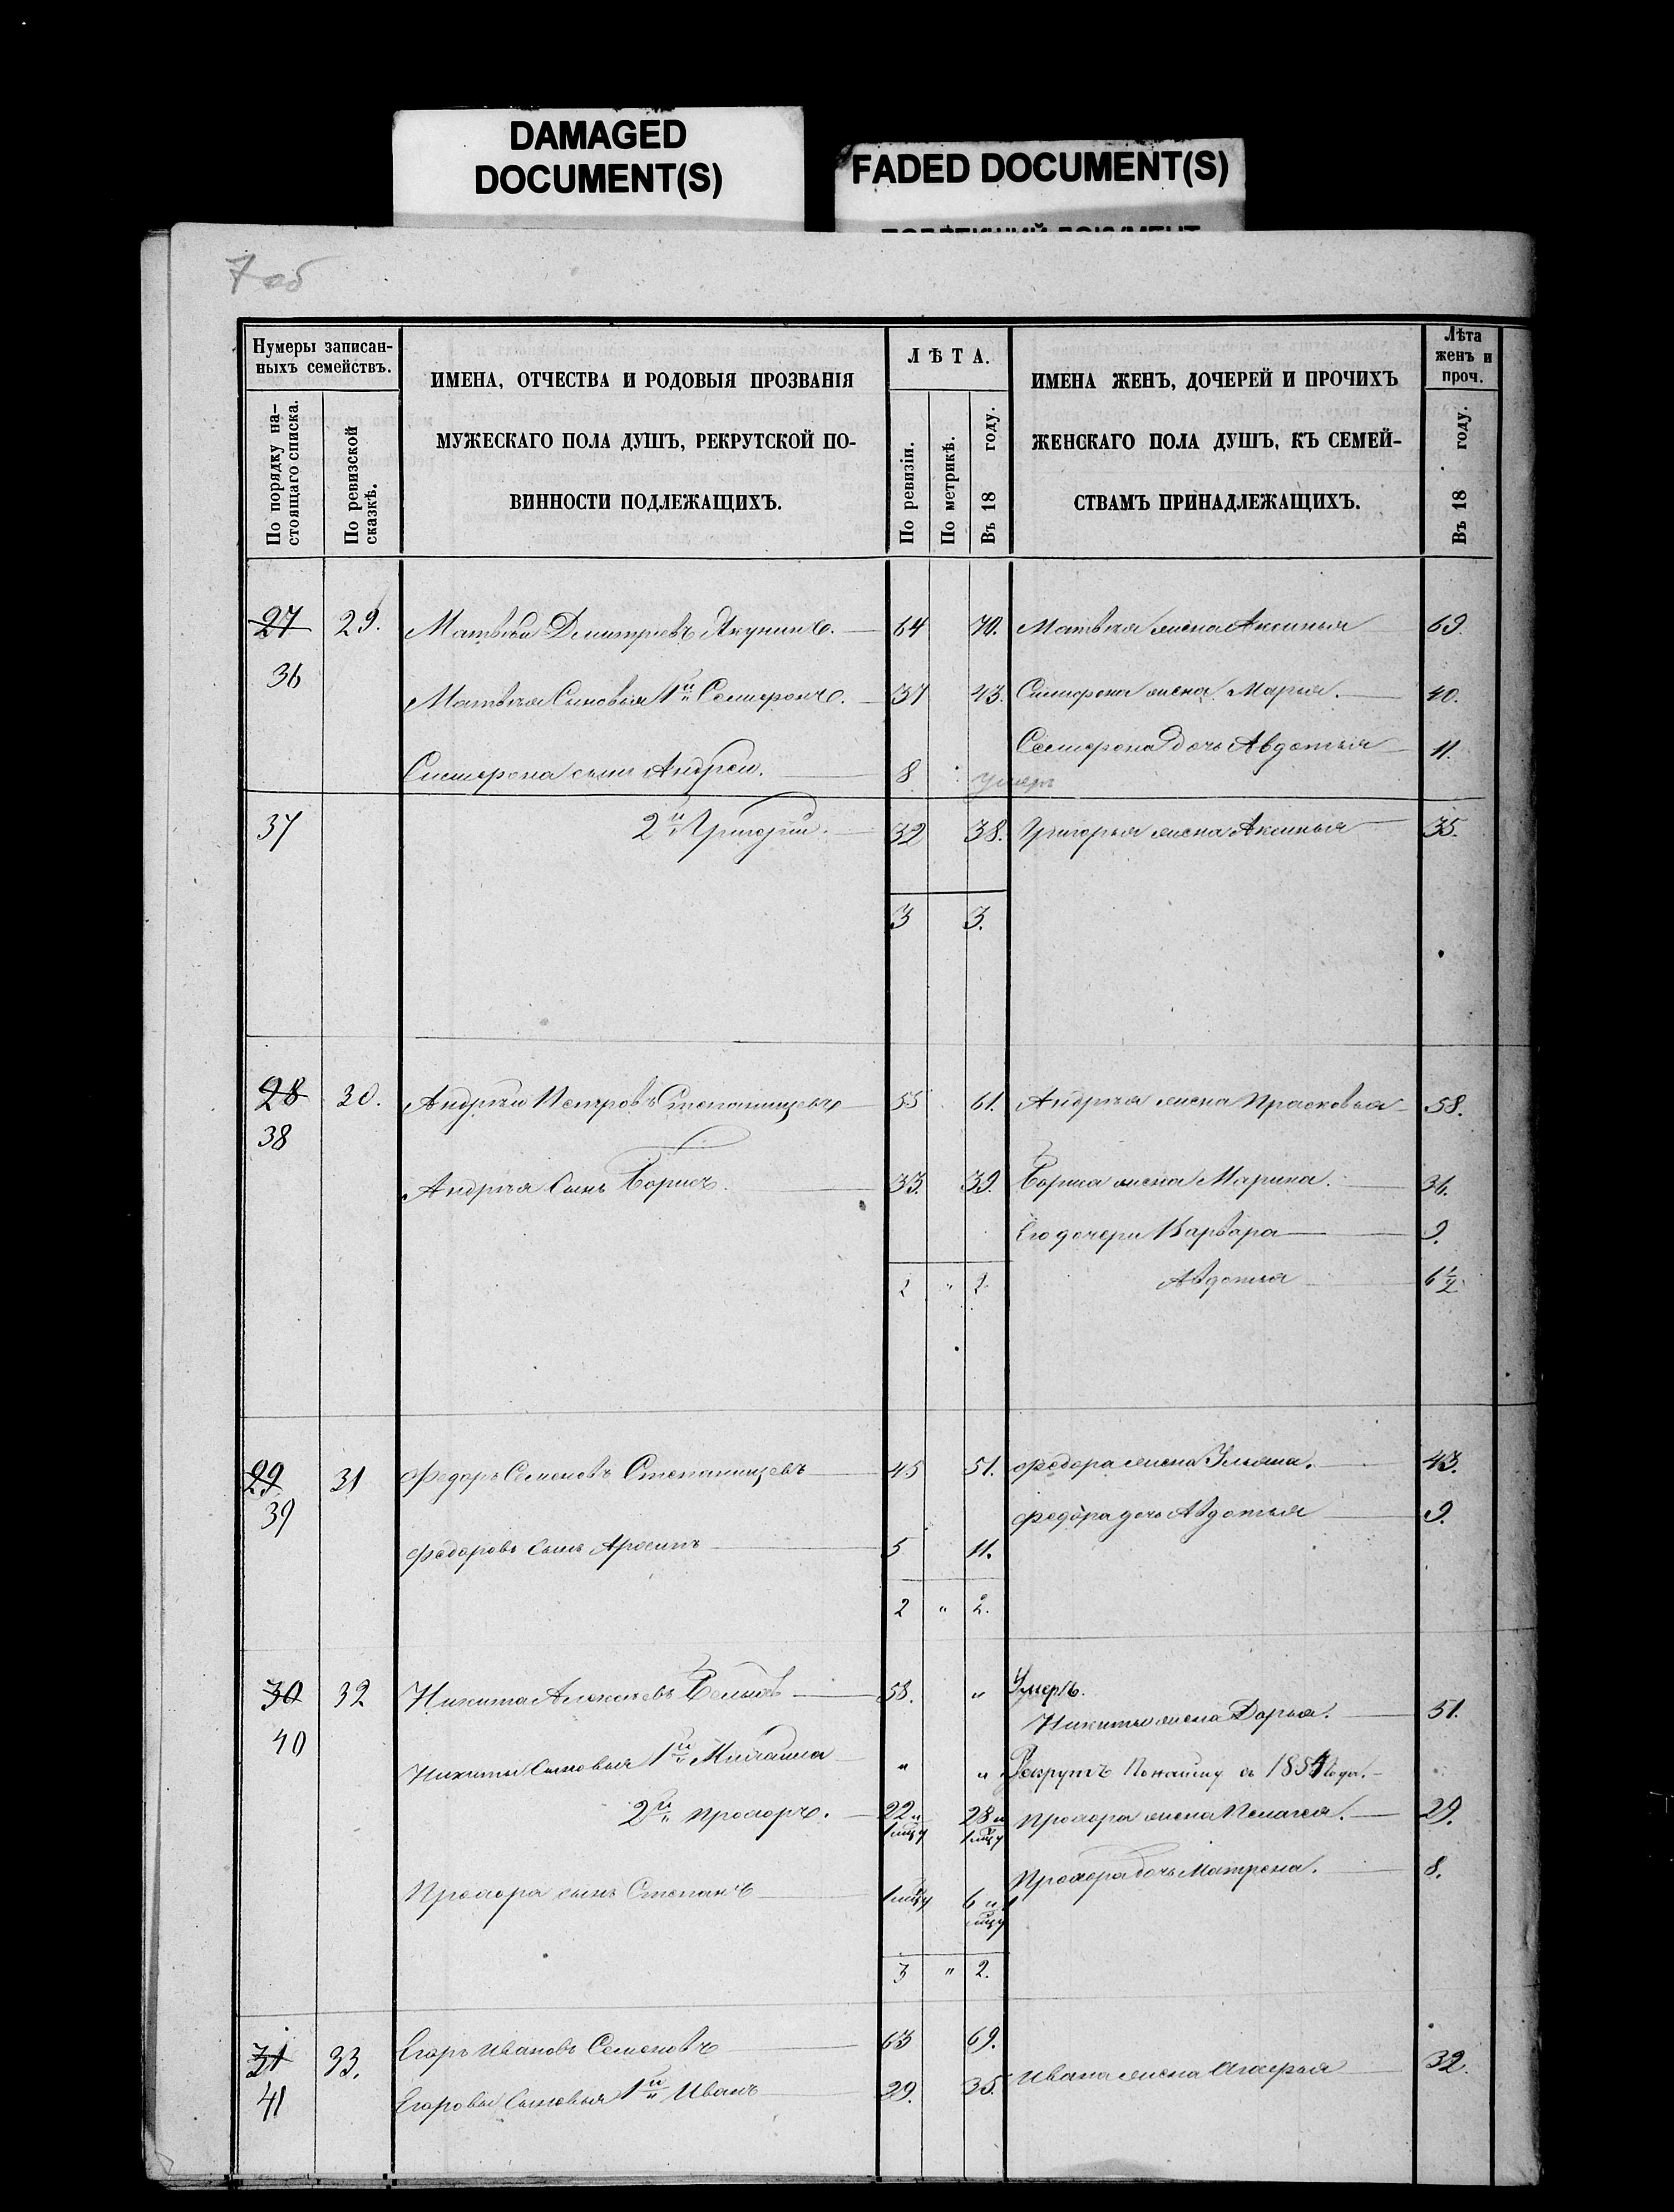 DAMAGED
DOCUMENT(S)
FADED DOCUMENT(S)
7 об
Нумеры записан-
ныхъ семействъ.
По порядку на-
стоящаго списка.
По ревизской
сказкѣ.
ИМЕНА, ОТЧЕСТВА И РОДОВЫЯ ПРОЗВАНІЯ
МУЖЕСКАГО ПОЛА ДУШЪ, РЕКРУТСКОЙ ПО-
ВИННОСТИ ПОДЛЕЖАЩИХЪ.
ЛѢТА.
По ревизіи.
По метрикѣ.
Въ 18 году.
ИМЕНА ЖЕНЪ, ДОЧЕРЕЙ И ПРОЧИХЪ
ЖЕНСКАГО ПОЛА ДУШЪ, КЪ СЕМЕЙ-
СТВАМЪ ПРИНАДЛЕЖАЩИХЪ.
Лѣта
женъ и
проч.
Въ 18 году.
27 29. Матвѣй Дмитріевъ Якунинъ. 64 70. Матвѣя жена Аксинья 69.
36
Матвѣя Сыновья 1й 37 43. жена Марья. 40.
дочь Авдотья 11.
сынъ Андрей. 8 умеръ
37 2й Григорій. 32 38. Григорья жена Аксинья 35.
3 3.
28 30. Андрей Петровъ Степанищевъ 55 61. Андрея жена Прасковья 58.
38
Андрея Сынъ Борисъ. 33. 39. Бориса жена Марина. 36.
Его дочери Варвара 9.
2 " 2. Авдотья 6½
29 31 Федоръ Семеновъ Степанищевъ 45 51. Федора жена Ульяна. 43.
39
Федора дочь Авдотья 9.
Федоровъ Сынъ 5 11.
2 " 2.
30 32 Никита 58. " Умеръ.
Никиты жена Дарья. 51.
40
Никиты Сыновья 1й Михаила " " Рекрутъ По найму въ 1854 Года.
2й Прохоръ. 22 и 28 и Прохора жена Пелагея. 29.
1 мцу 1 мцу
Прохора дочь Матрена. 8.
Прохора сынъ Степанъ 1 мцу 6 и 1
мцу
3 " 2.
31 33. Егоръ Ивановъ Семеновъ 63 69.
Ивана жена Агафья 32.
41 Егоровы Сыновья 1й Иванъ 29. 35.